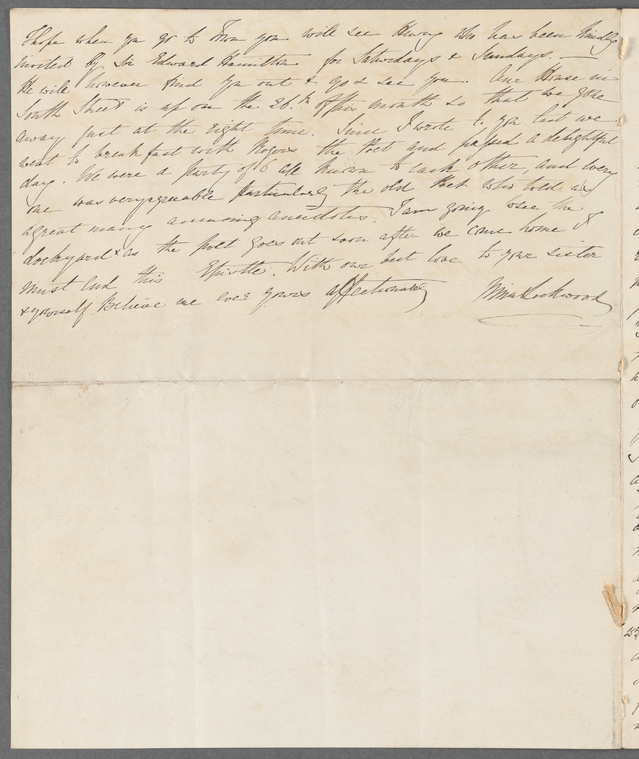 I hope when you go to Town you will see Henry who has been kindly
invited by Sir Edward Hamilton for Saturdays & Sundays. —
He will however find you out & go & see you. Our House in
South Street is up on the 26th of this month so that we gone
away just at the right time. Since I wrote to you last we
went to breakfast with Rogers the Poet and passed a delightful
day. We were a party of 6 all known to each other, and every
one was very agreeable particularly the old Poet who told us
a great many amusing anecdotes. I am going to see the
dockyard & as the post goes out soon after we come home I
must End this Epistle. With our best love to your sister
& yourself Believe me ever yours affectionately